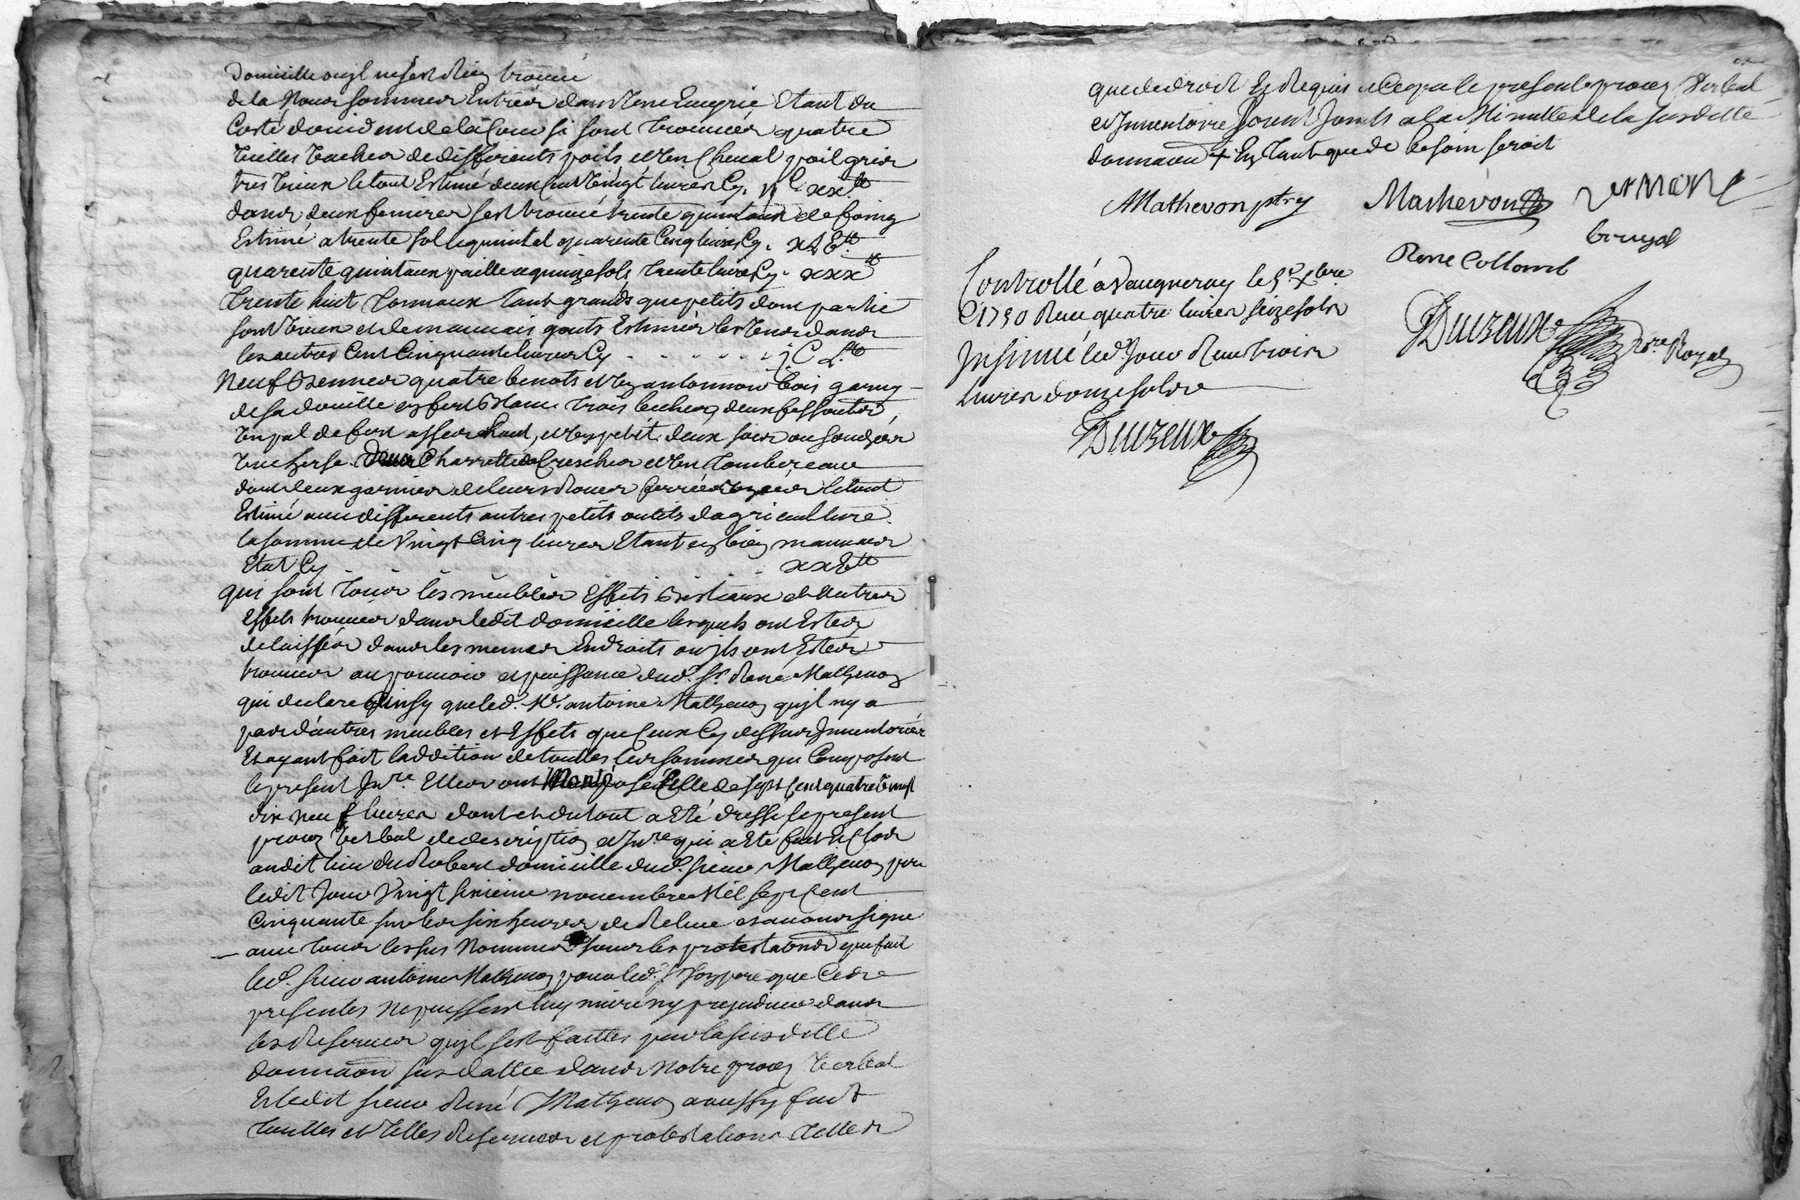 Domicille ou il ne sest Rien trouvé
de la Nous sommes Entrées dans Une Ecuyrie Etant du
Costé doccident de la Cour si sont trouvées quatre
Vielles Vaches de differents poils et Un Cheval poil gris
tres Vieux le tout Estimé deux Cent Vingt livres Cy. ijC xx lt
dans deux fenieres sest trouvé trente quintaux de foing
Estimé a trente sol le quintal quarente Cinq livres Cy. xLV lt
quarente quintaux paille a quinze sols trente livres Cy. xxx lt
trente huit tonneaux tant grands que petits dont partie
sont Vieux et de mauvais gouts Estimées les Uns dans
les autres Cent Cinquante livres Cy . . . . . . jC L lt
Neuf Bennes quatre benots et Un antonnoir bois garny
de sa douille en fert blanc trois beches deux fessoules,
Un pal de fert assés haut, et Un petit deux
Une herse. Charrette et Un tombereau
dont deux garnies de leurs Roues ferrées le tout
Estimé avec differents autres petits outils dagriculture
la somme de Vingt Cinq livres Etant en bien mauvais
Etat Cy xxV lt
qui sont touts les meubles Effets Bestiaux et Autres
Effets trouvées dans ledit domicille lesquels ont Estés
delaissées dans les memes Endroits ou ils ont Estés
trouvées au pouvoir et puissance dud. Sr. René Mathevon
qui declare Ainsy que led. Sr. antoine Mathevon quil ny a
pas dautres meubles et Effets que Ceux Cy dessus Inventoriés
Et ayant fait laddition de touttes les sommes qui Composent
le present Inre. Elles ont Monté a Celle de sept Cent quatre Vingt
dix neuf livres dont et du tout a Eté dressé le present
procez Verbal de description et Inre qui a Eté fait et Clos
audit lieu du Robert domicille dud. sieur Mathevon pere
ledit Jour Vingt sixieme novembre Mil sept Cent
Cinquante sur les six heures de Relevé et avons signé
avec touts les sus Nommes sous les protestations que fait
led. sieur antoine Mathevon pour led. S. son pere que Ces
presentes ne puissent luy nuire ny prejudicier dans
les Reserves quil sest faittes par la susditte
donnation sus dattée dans Notre procez Verbal
Et ledit sieur René Mathevon a aussy fait
touttes et telles Reserves et protestations telles
que de droit Et Requis acte que le present procez Verbal
et Inventaire soient Joints a la Minutte de la susditte
donnation + En tant que de besoin seroit
AMathevon ptre Mathevon
bruyas
René Collomb
Controllé a Vaugneray le 5e Xbre
1750 Reçu quatre livres seize sols
Insinué led. Jour Reçu trois
livres douze sols
Duizeux Nre Royal
Duizeux